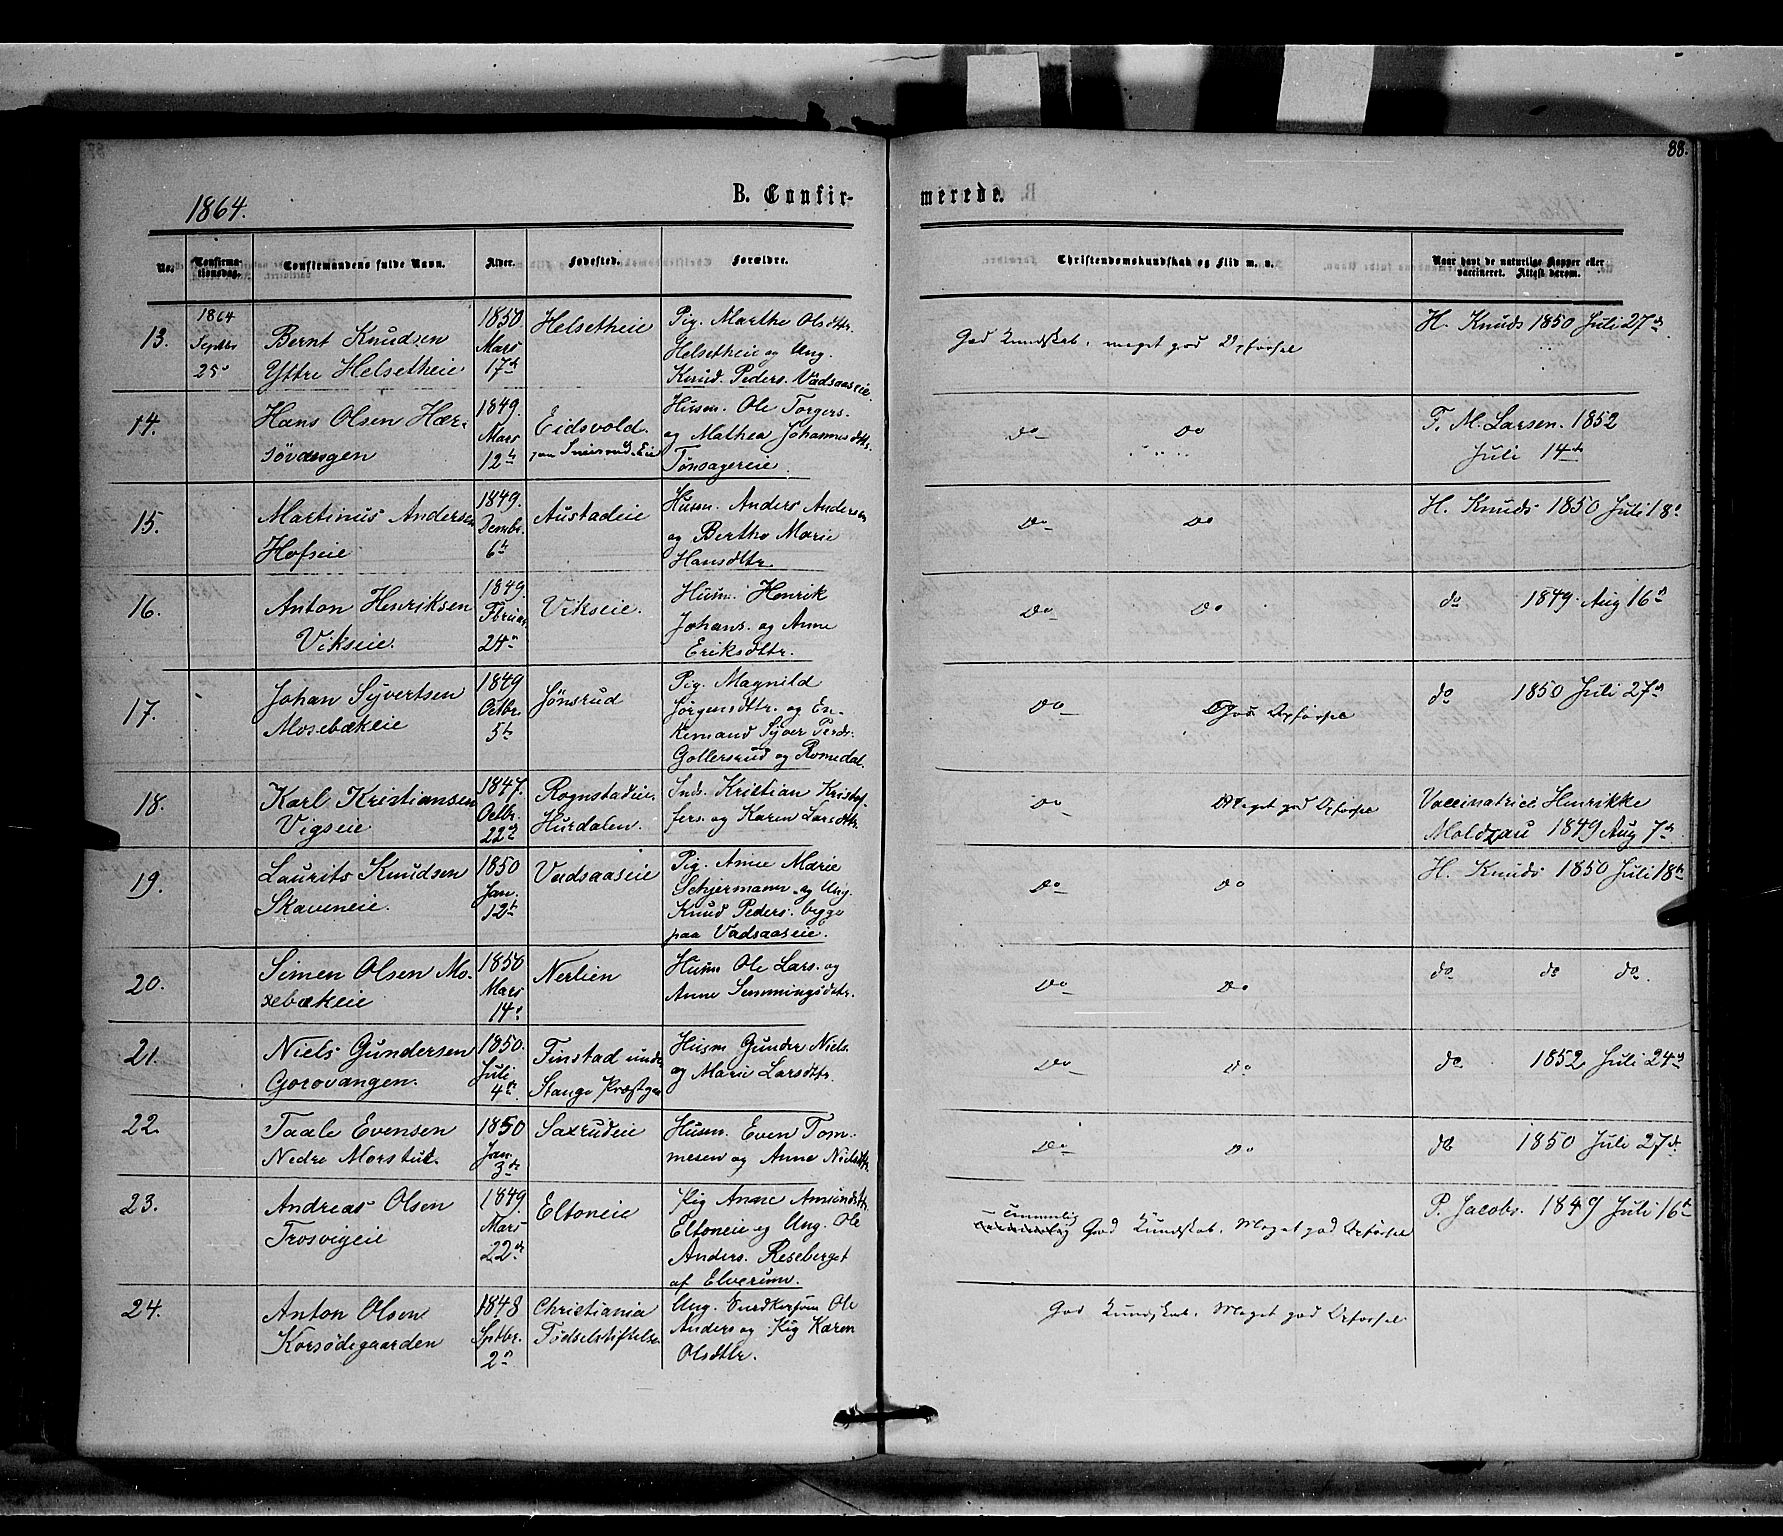 88.
1864.
B. Confir-
merede.
No.
Confirma-
tionsdag.
Confirmandens fulde Navn.
Alder.
Fødested.
Forældre.
Christendomskundskab og Flid m. v.
Naar havt de naturlige Kopper eller
vaccineret. Attest derom.
13.
1864
Septbr
25
Bernt Knudsen
Yttre Helsetheie
1850
Mars
17de
Helsetheie
Pig. Marthe Olsdtr.
Helsetheie og Ung.
Knud Peders. Vadsaaseie.
God Kundskab, meget god Opførsel
H. Knuds 1850 Juli 27de
14.
Hans Olsen Hær-
søvangen
1849.
Mars
12te
Eidsvold.
Husm. Ole Torgers.
og Mathea Johannesdtr.
Tønsagereie.
Do Do
T. M. Larsen. 1852
Juli 14de
15.
Martinus Andersen
Hofseie
1849.
Dembr.
6te
Austadeie
Husm. Anders Andersen
og Berthe Marie
Hansdtr.
Do Do
H. Knuds 1850 Juli 18
16.
Anton Henriksen
Vikseie.
1849.
Februar.
24
Vikseie.
Husm. Henrik
Johans. og Anne
Eriksdtr.
Do Do
do 1849. Aug 16
17.
Johan Syvertsen
Mosebækeie
1849
Octbr.
5te
Jønsrud
Pig. Magnild
Jørgensdtr. og En-
kemand Syver Peds.
Gollersrud og Romedal.
Do God Opførsel
do 1850 Juli 27de
18.
Karl Kristiansen
Vigseie
1847.
Octbr.
22
Rognstadeie.
Hurdalen.
Inds. Kristian Kristof-
fers. og Karen Larsdtr.
Do Meget god Opførsel
Vaccinatrice Henrikke
Moldzau 1849 Aug 7de
19.
Laurits Knudsen
Skaveneie.
1850
Jan.
12te
Vadsaaseie
Pig. Anne Marie
Schjermann og Ung.
Knud Peders. begge
paa Vadsaaseie.
Do Do
H. Knuds 1850 Juli 18te
20.
Simen Olsen Mo-
sebækeie
1850
Mars
14
Nerlien
Husm Ole Lars. og
Anne Semmingsdatr.
Do Do
do do do
21.
Niels Gundersen
Gorovangen.
1850.
Juli
4de
Finstad unde
Stange Præstgjæ
Husm Gunder Niels.
og Marie Larsdtr.
Do Do
do 1852 Juli 24de
22.
Taale Evensen
Nedre Morstue.
1850
Jan.
3de
Saxrudeie
Husm. Even Tom-
mesen og Anne Nielsdtr.
Do Do
do 1850 Juli 27de
23.
Andreas Olsen
Trosvigeie
1849.
Mars
22de
Eltoneie
Pig Anne Amundsdtr.
Eltoneie og Ung. Ole
Anders. Reseberget
af Elverum.
temmelig
God Kundskab. Meget god Opførsel
P. Jacobs. 1849 Juli 16te
24.
Anton Olsen
Korsødegaarden
1848
Sptbr.
2
Christiania
Fødselstiftelse
Ung. Ole
Anders og Pig Karen
Olsdtr.
God Kundskab. Meget god Opførsel